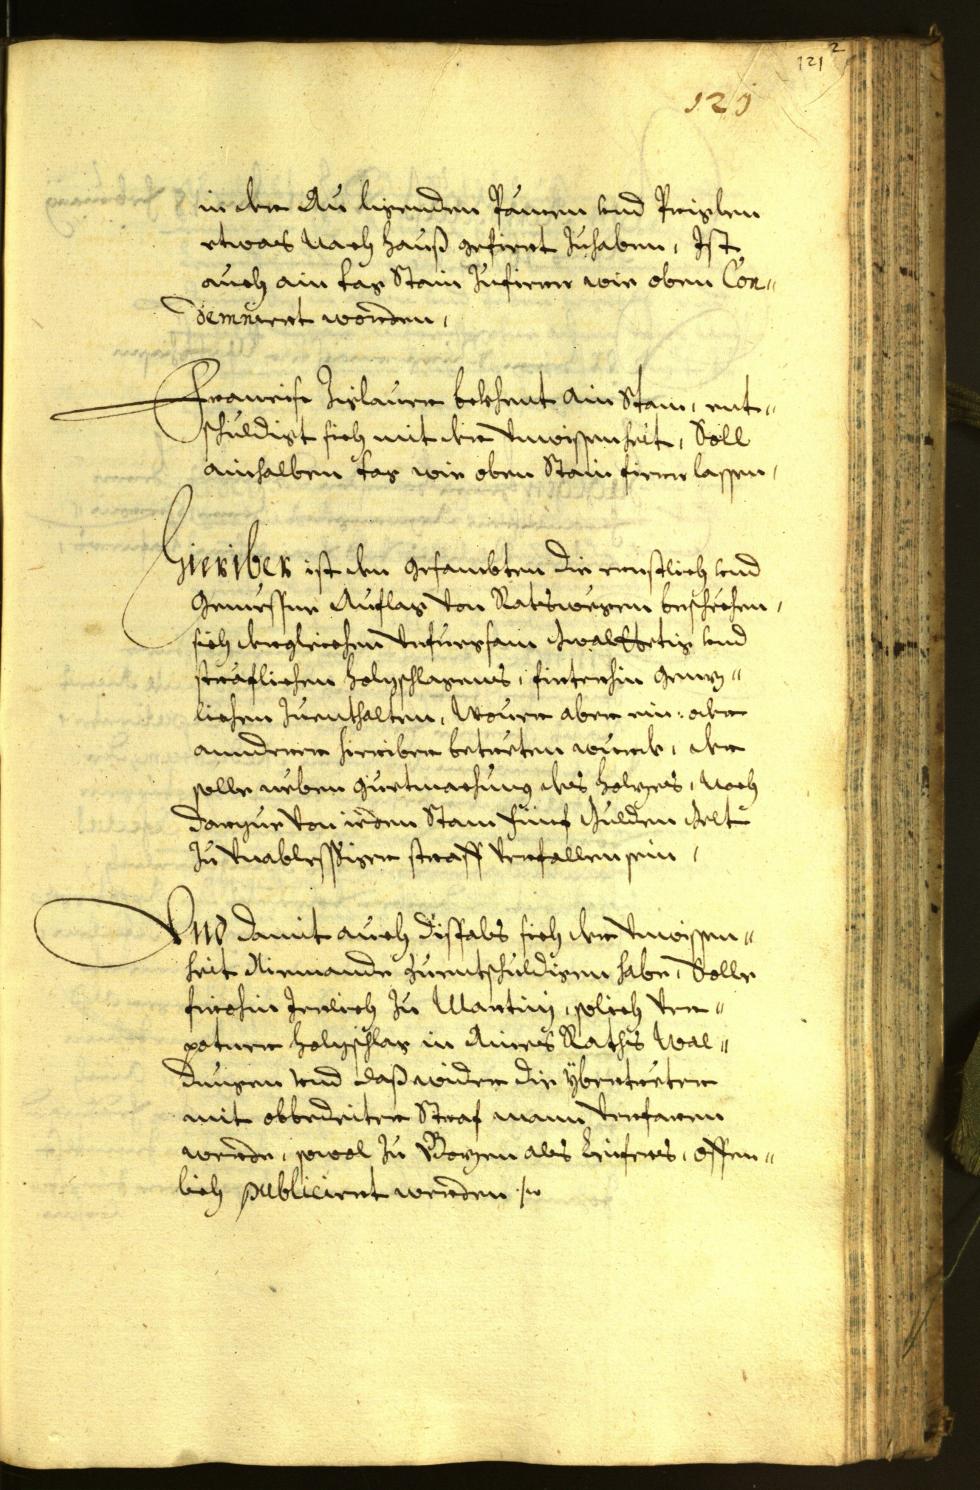 2
121
121
in der Au ligenden Pämen vnd Preislen
etwas nach Hauß gefiert zuhaben, Ist
auch ain tag Stain zufieren wie oben Con„
demniert worden,
Francisc belehent ain Stam, ent„
schuldigt sich mit der vnwissenheit, Soll
ainhalben tag wie oben Stain fieren lassen,
Hieriber ist den gesambten die ernstlich vnd
gemessne Auflag von Ratswegen beschechen,
sich dergleichen vnfuegsam gwalttetig vnd
sträflichen holzschlagens, firterhin genz„
lichen zuenthalten, Wouer aber ein: oder
annderer hieriber betreten wurde, der
solle neben guetmachung des holzes, noch
darzue von ieden Stam fünf Gulden gelt
zu vnableßiger straff verfallen sein,
Vnd damit auch dißfals sich der vnwissen„
heit Niemandt zuentschuldigen habe, Solle
firohin Jerlich zu Martinj, solich ver„
potner holzschlag in Aines Raths Wal„
dungen vnd daß wider die ybertreter
mit obbedeiter Straf mann verfaren
werde, sowol zu Bozen als Leifers, offen„
lich publiciert werden